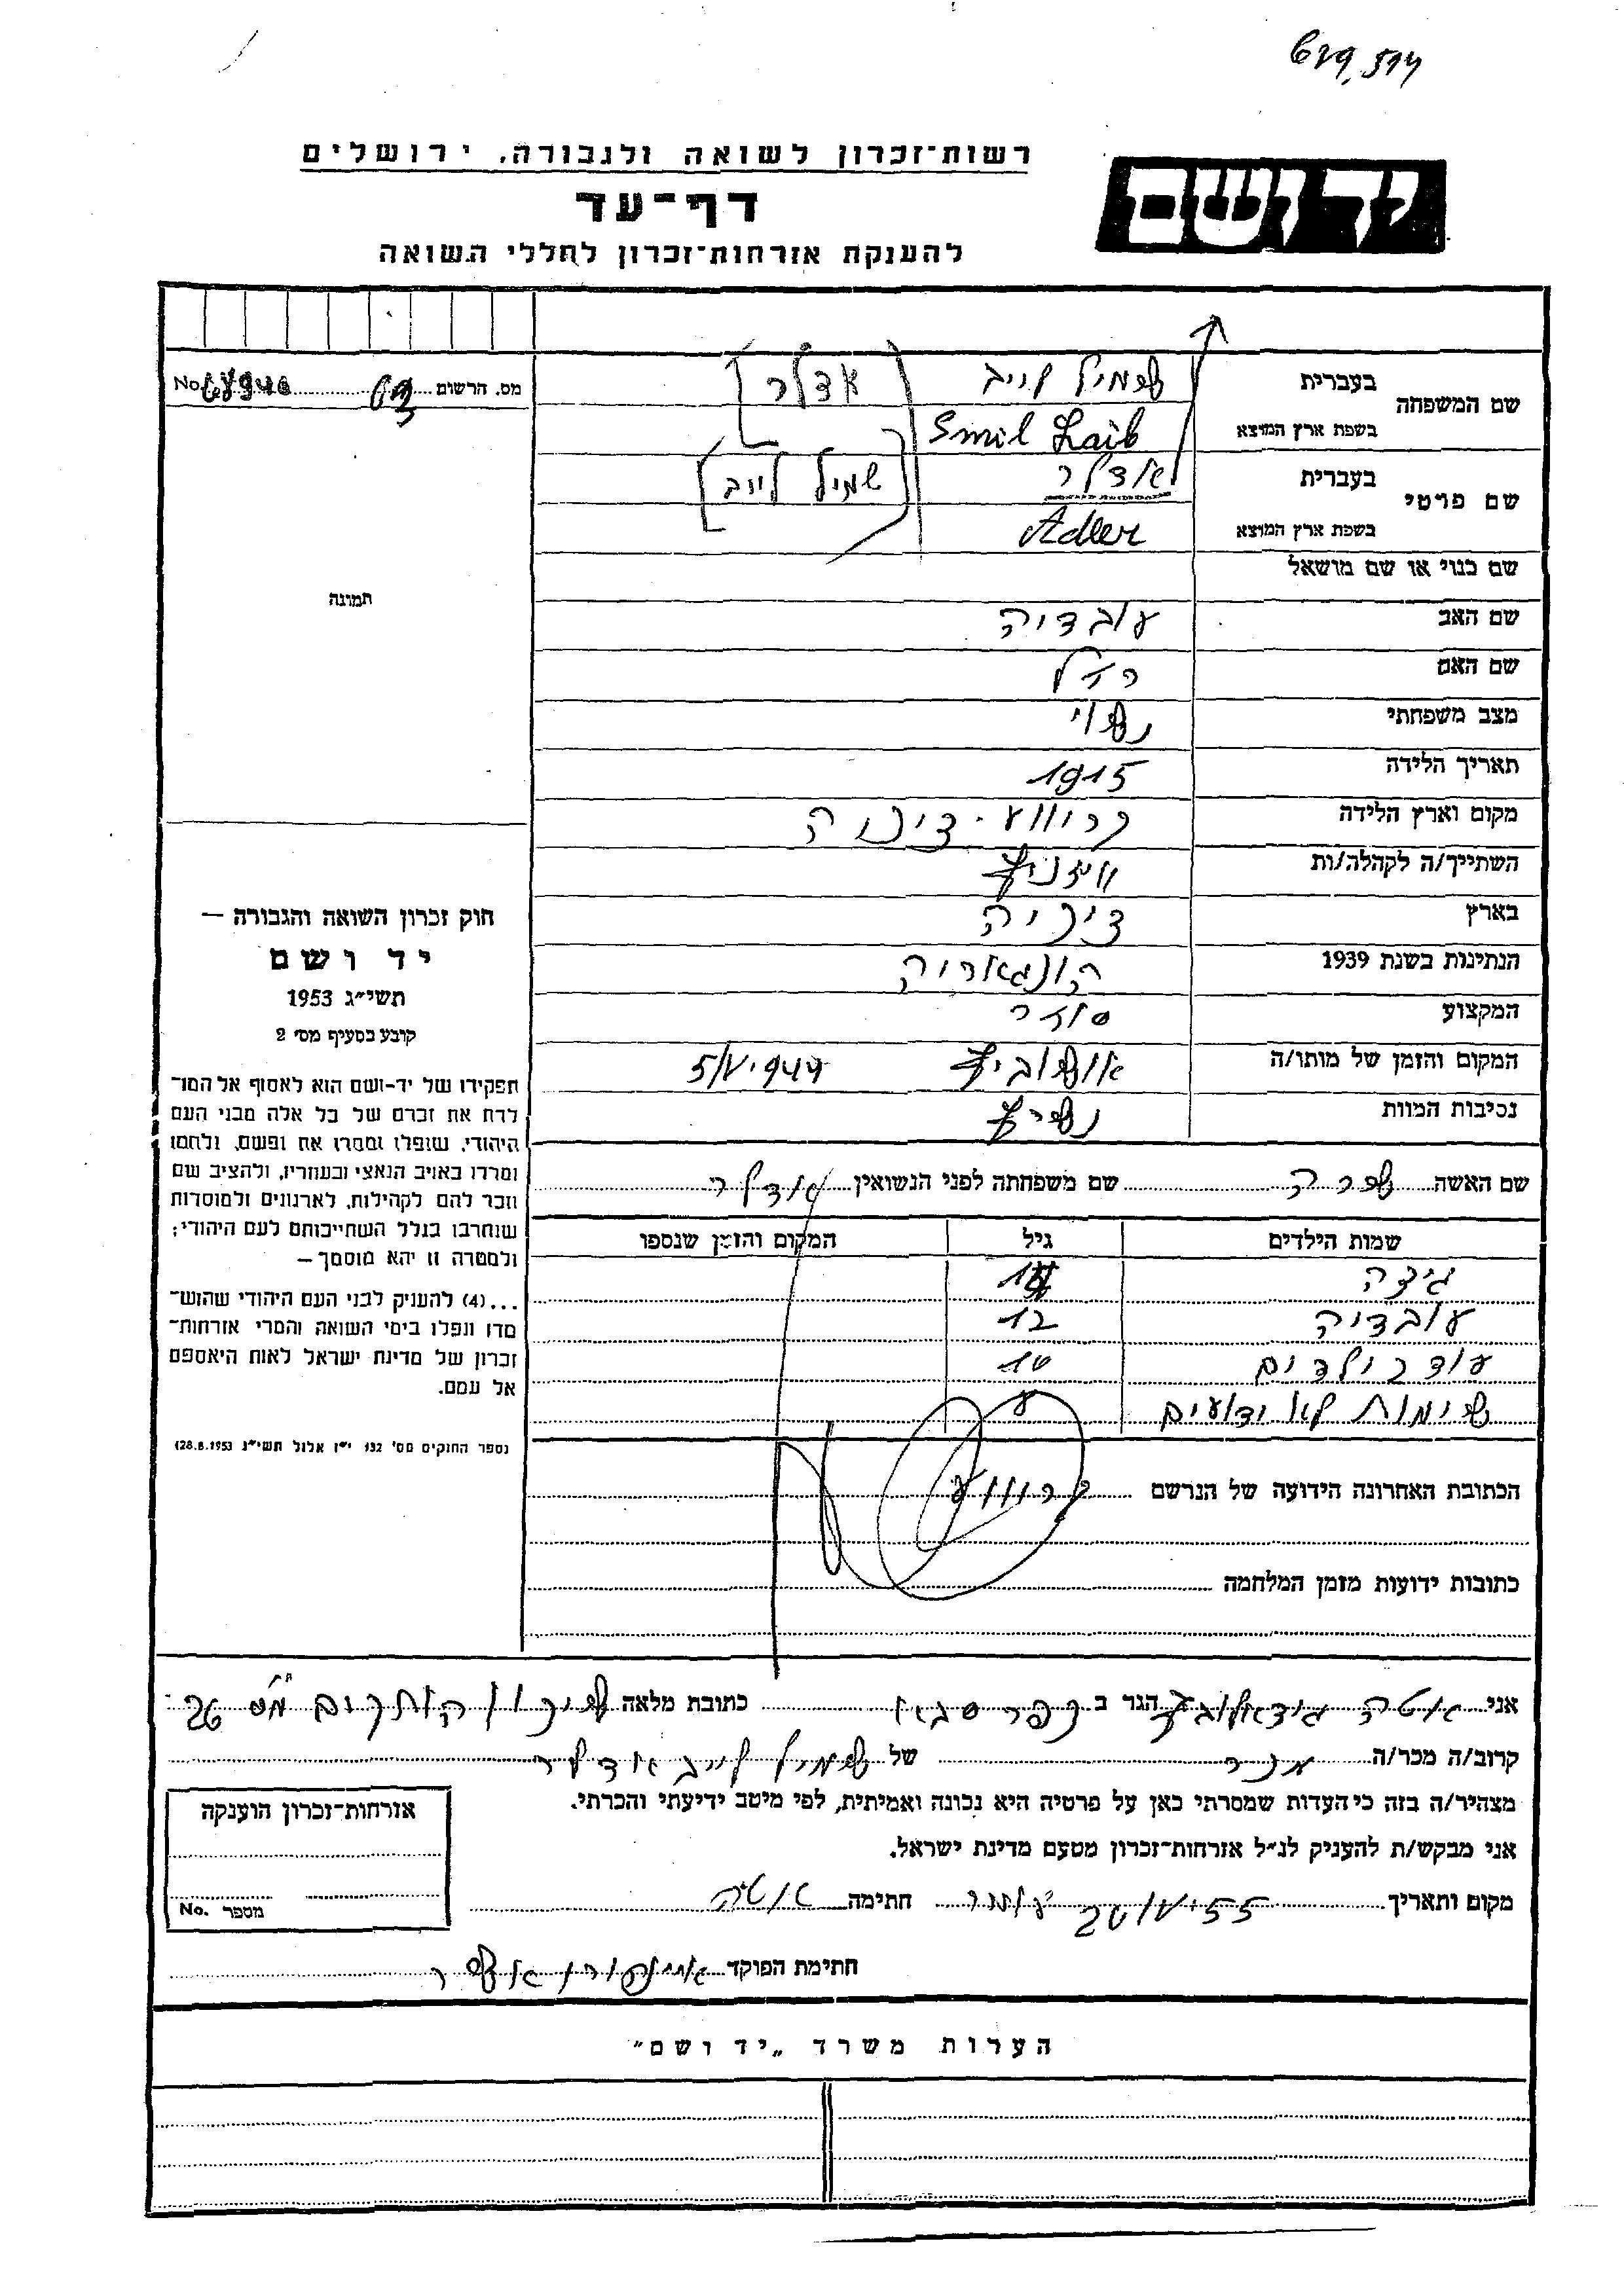 629,514
רשות־זכרון לשואה ולגבורה, ירושלים
יד ושם
דף־עד
להענקת אזרחות־זכרון לחללי השואה
מס. הרשום No
שם המשפחה בעברית שמיל לייב [אדלר]
בשפת ארץ המוצא Smil Laib
שם פרטי בעברית אדלר [שמיל לייב]
בשפת ארץ המוצא Adler
שם כנוי או שם מושאל
תמונה
שם האב עובדיה
שם האם רזל
מצב משפחתי נשוי
תאריך הלידה 1915
מקום וארץ הלידה
השתייך/ה לקהלה/ות
בארץ
הנתינות בשנת 1939 הונגאריה
המקצוע סוחר
המקום והזמן של מותו/ה אושוביץ 5/V.944
נסיבות המוות
חוק זכרון השואה והגבורה —
יד ושם
תשי״ג 1953
קובע בסעיף מס׳ 2
תפקידו של יד-ושם הוא לאסוף אל המו־
לדת את זכרם של כל אלה מבני העם
היהודי, שנפלו ומסרו את נפשם, נלחמו
ומרדו באויב הנאצי ובעוזריו, ולהציב שם
וזכר להם לקהילות, לארגונים ולמוסדות
שנחרבו בגלל השתייכותם לעם היהודי;
ולמטרה זו יהא מוסמך—
...(4) להעניק לבני העם היהודי שהוש־
מדו ונפלו בימי השואה והמרי אזרחות־
זכרון של מדינת ישראל לאות היאספם
אל עמם.
(ספר החוקים מס׳ 132 י״ז אלול תשי״ג 28.8.1953)
שם האשה שרה שם משפחתה לפני הנשואין אדלר
שמות הילדים גיל המקום והזמן שנספו
גיצה
עובדיה 12
עוד 2 ילדים 10
שימות לא ידועים
הכתובת האחרונה הידועה של הנרשם
כתובות ידועות מזמן המלחמה
אני אטה הגר ב כפר סבא כתובת מלאה שיכון הותקים 26
קרוב/ה מכר/ה מכר של שמיל לייב אדלר
מצהיר/ה בזה כי העדות שמסרתי כאן על פרטיה היא נכונה ואמיתית, לפי מיטב ידיעתי והכרתי.
אני מבקש/ת להעניק לנ״ל אזרחות־זכרון מטעם מדינת ישראל.
מקום ותאריך חתימה אטה
חתימת הפוקד
אזרחות־זכרון הוענקה
מספר No.
הערות משרד „יד ושם״